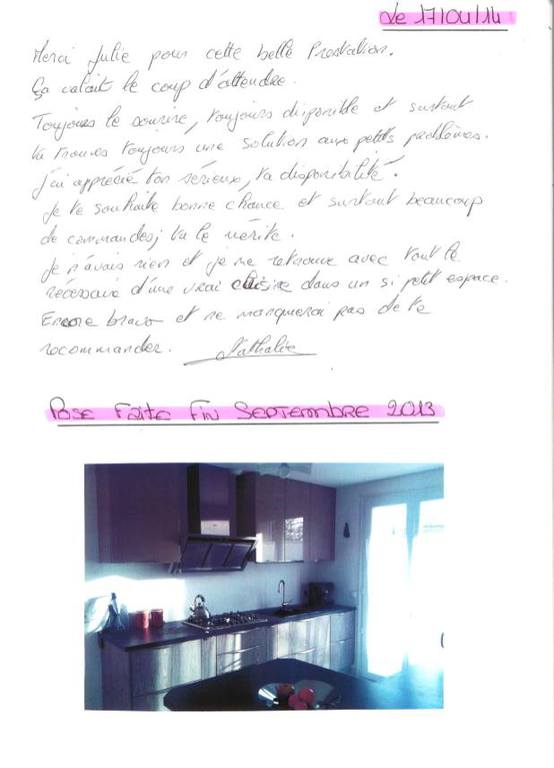 Le 17/04/14
Merci Julie pour cette belle Prestation.
Ça valait le coup d'attendre.
Toujours le sourire, toujours disponible et surtout
tu trouves toujours une solution aux petits problèmes.
j'ai apprécié ton sérieux, ta disponibilité.
Je te souhaite bonne chance et surtout beaucoup
de commandes, tu le mérite.
Je n'avais rien et je me retrouve avec tout le
nécessaire d'une vrai cuisine dans un si petit espace.
Encore bravo et ne manquerai pas de te
recommander. Nathalie
Pose Faite Fin Septembre 2013